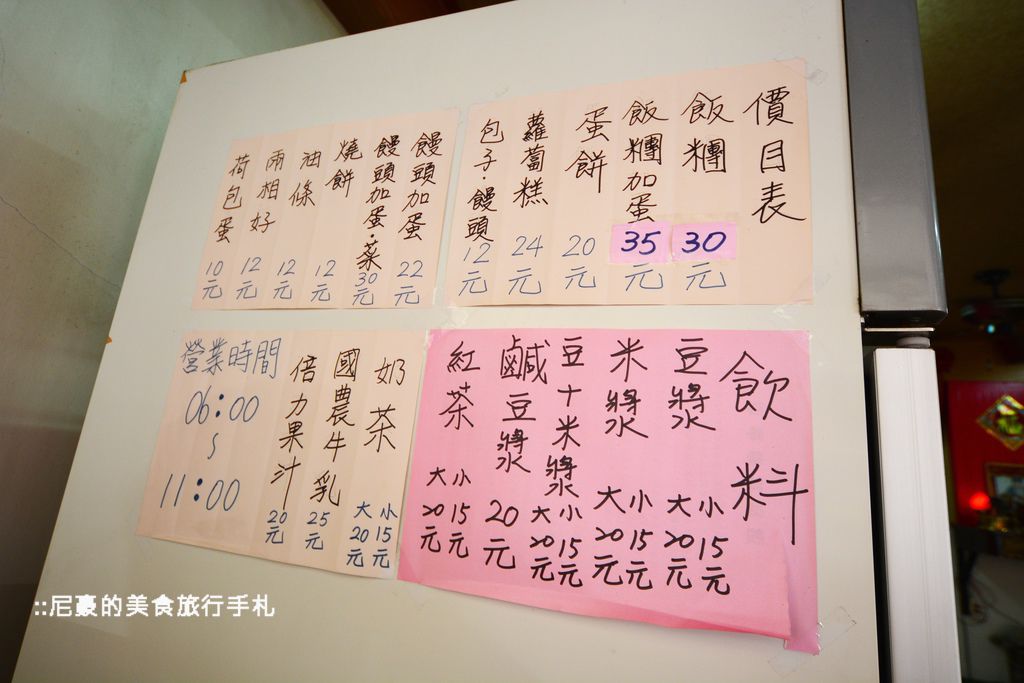 價目表
飯糰 30元
飯糰加蛋 35元
蛋餅 20元
蘿蔔糕 24元
包子·饅頭 12元
饅頭加蛋 22元
饅頭加蛋·菜 30元
燒餅 12元
油條 12元
兩相好 12元
荷包蛋 10元
飲料
豆漿 大20元 小15元
米漿 大20元 小15元
豆+米漿 大20元 小15元
鹹豆漿 20元
紅茶 大20元 小15元
奶茶 大20元 小15元
國農牛乳 25元
倍力果汁 20元
營業時間
06:00
~
11:00
::尼豪的美食旅行手札